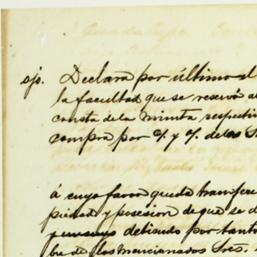 9o. Declara por último el
la facultad que se reservó al
consta de la minuta respectiv
compra por y de los S
á cuyo favor queda transfere
piedad y posesion de que se d
debiendo por tanto
los mencionados Sres.